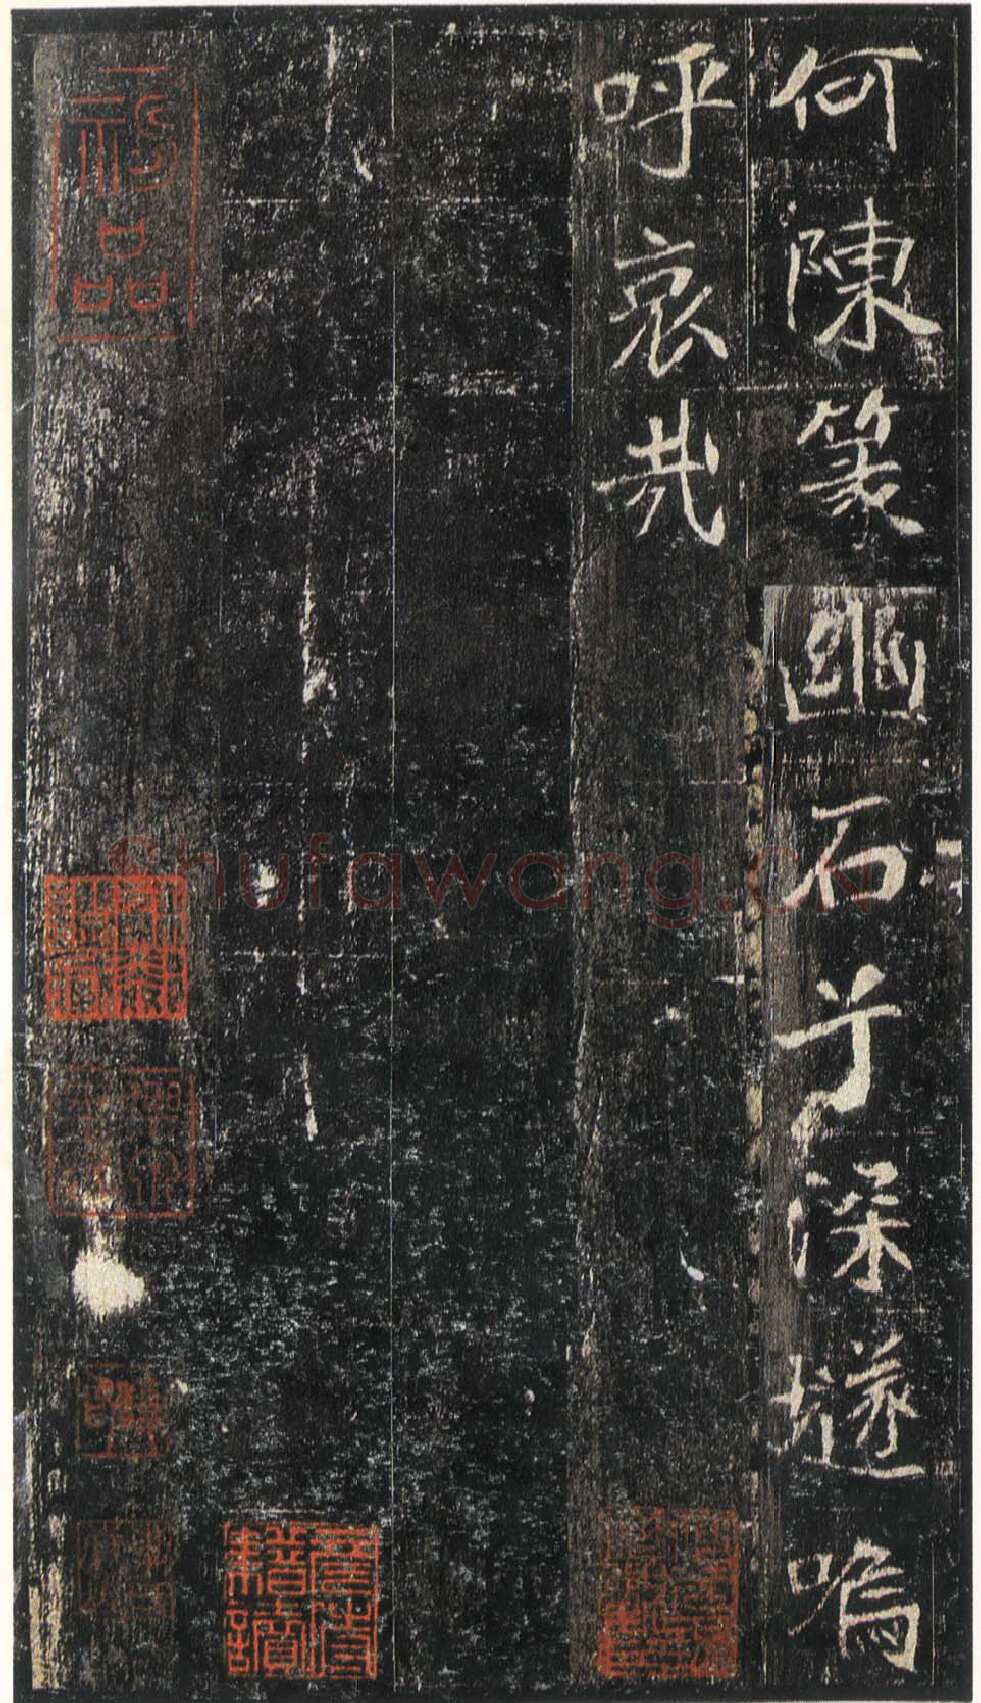 何陳篆幽石于深𡑞嗚
呼哀哉
神品
shufawang.cn